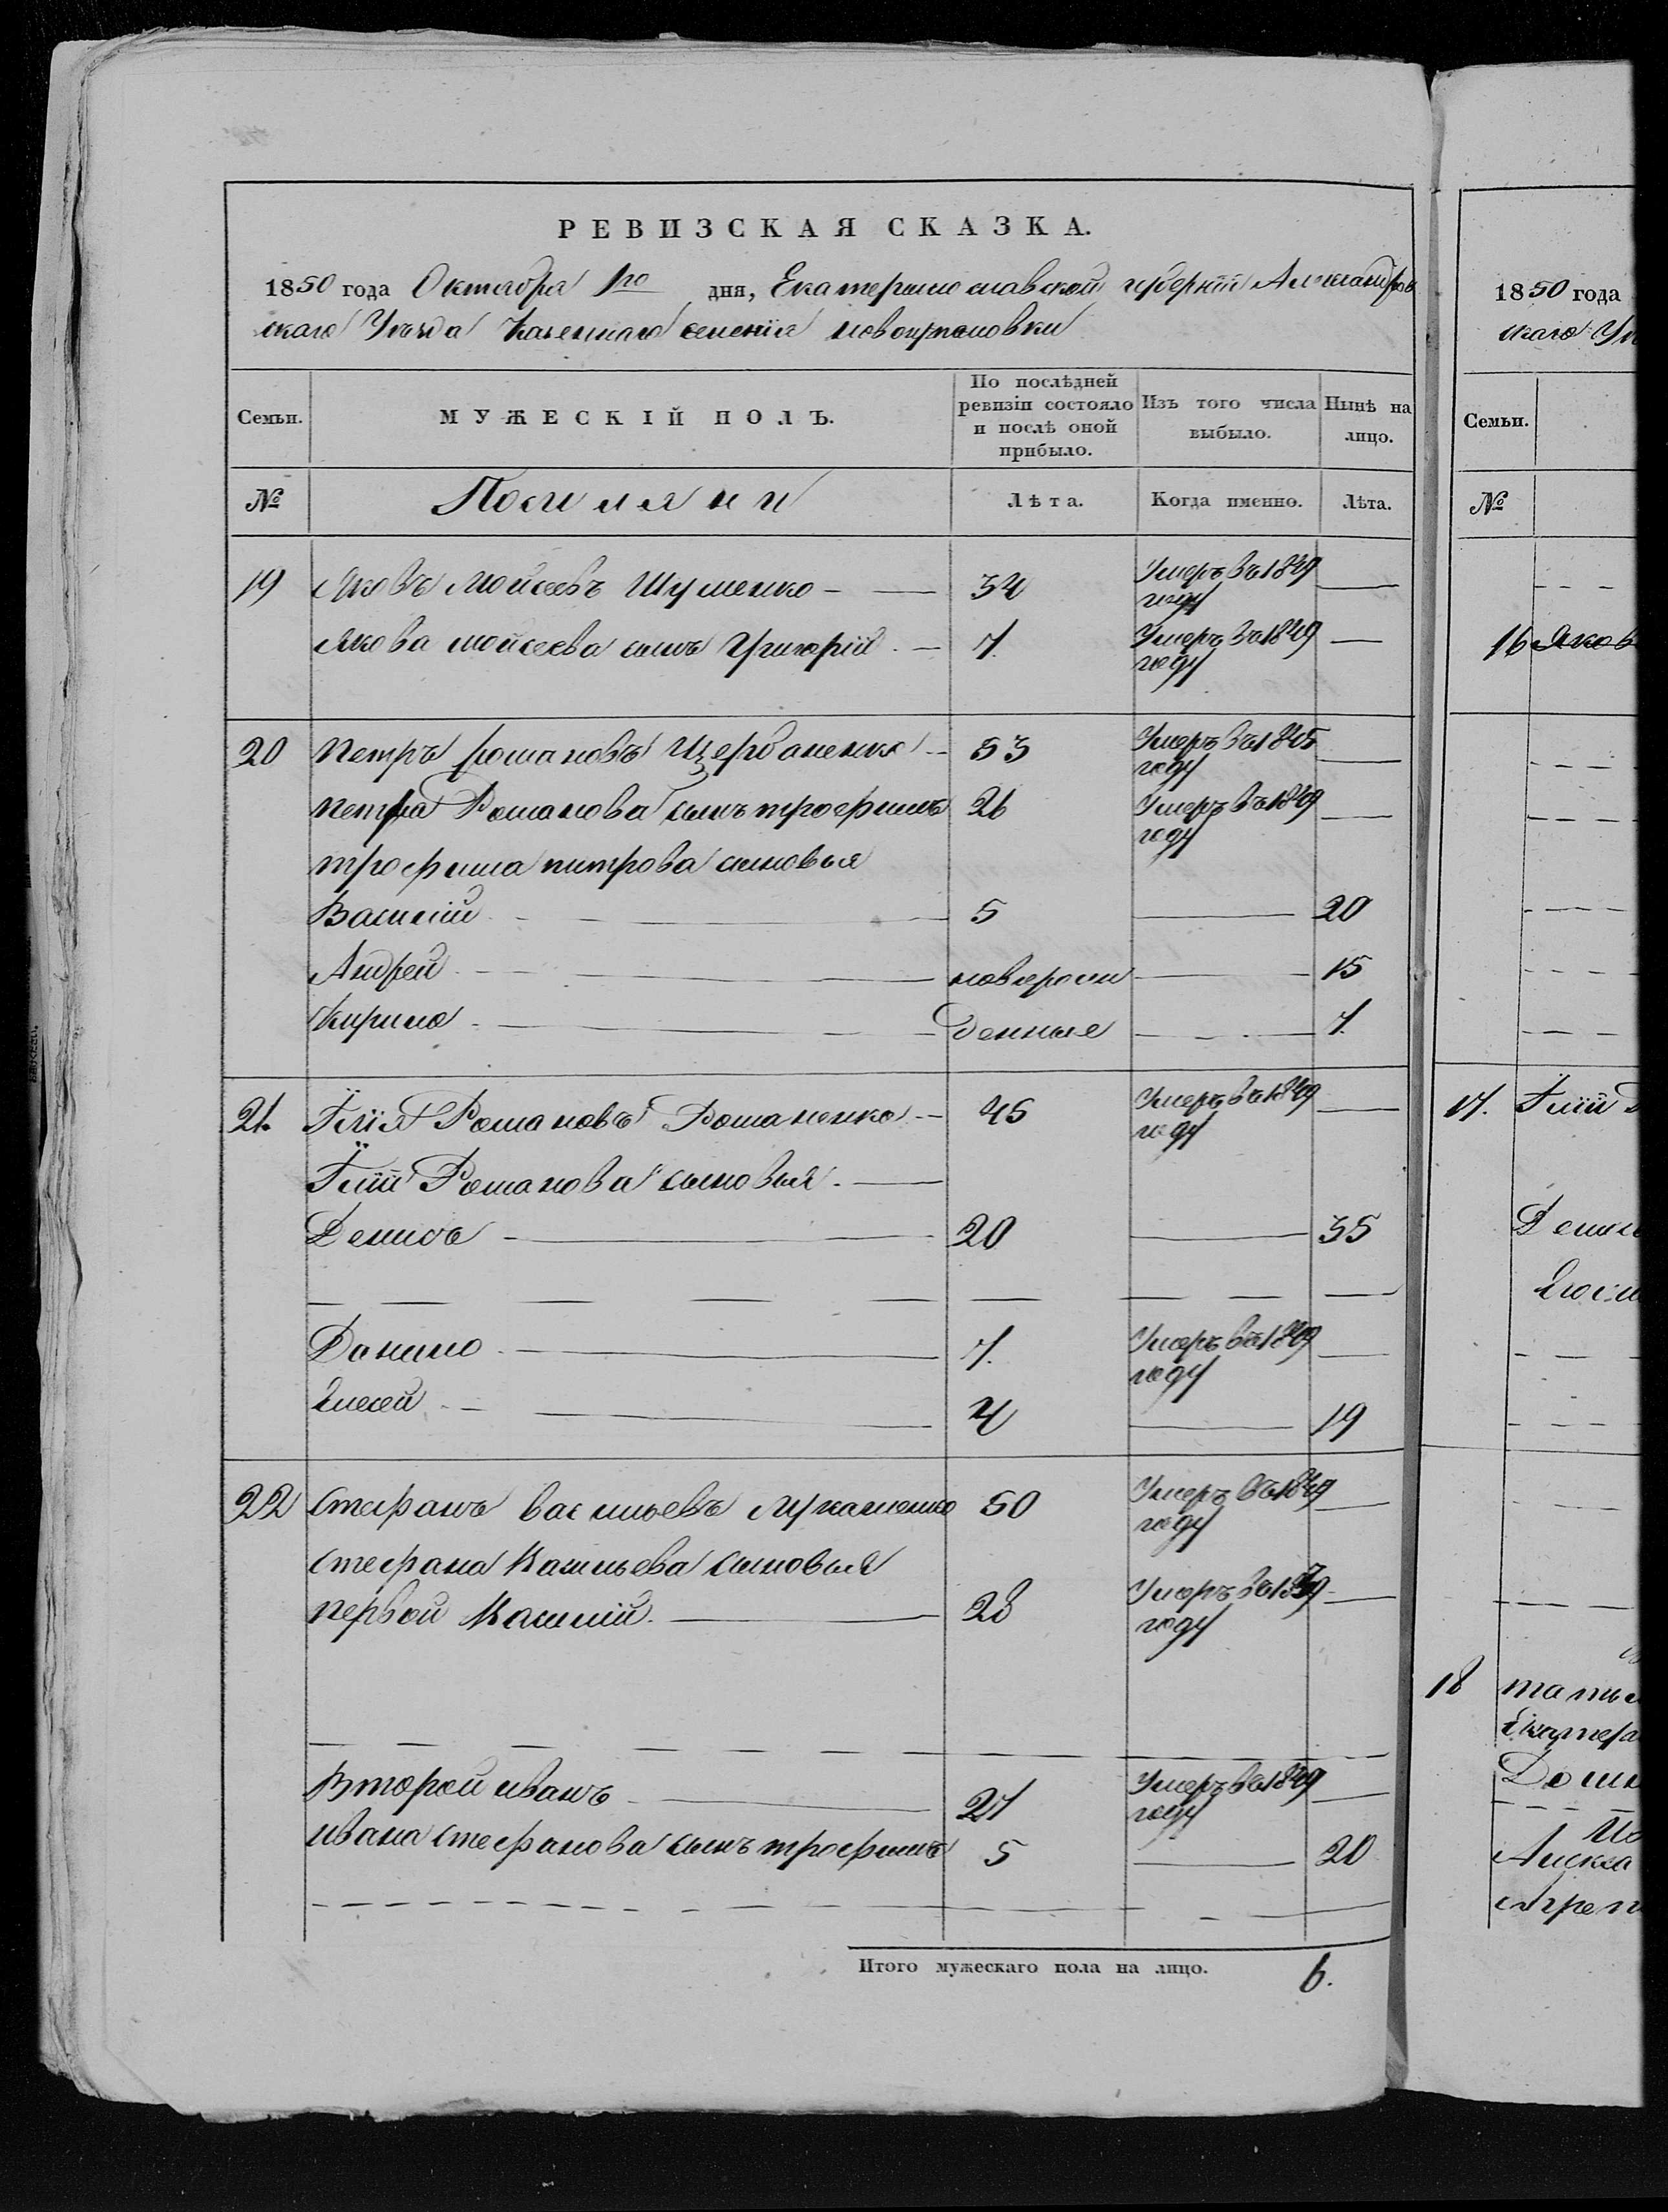 РЕВИЗСКАЯ СКАЗКА.
1850 года Октября 1го дня, Екатеринославской губернїи Александров
скаго Уѣзда Казеннаго селенїя
Семьи. МУЖЕСКІЙ ПОЛЪ. По послѣдней ревизіи состояло и послѣ оной прибыло. Изъ того числа выбыло. Нынѣ на лицо.
№ Поселяни Лѣта. Когда именно. Лѣта.
19 Яковъ Мойсеевъ Шуменко 34 Умеръ въ 1849 году
Якова мойсеева сынъ Григорій 7. Умеръ въ 1849 году
20 Петръ романовъ Щербаненко 53 Умеръ въ 1845 году
петра Романова сынъ трофимъ 26 Умеръ въ 1849 году
трофима питрова сыновья
Василїй 5 20
Андрей новорож 15
Кирило денные 7.
21. Їлїя Романовъ Романенко 45 Умеръ въ 1849 году
Їлїи Романова сыновья
Денисъ 20 35
Данило 7. Умеръ въ 1849 году
Елисей 4 19
22 Стефанъ васильевъ Луканенко 50 Умеръ въ 1849 году
стефана Васильева сыновья
первой Василїй 28 Умеръ въ 1839 году
Второй иванъ 27 Умеръ въ 1849 году
ивана стефанова сынъ трофимъ 5 20
Итого мужескаго пола на лицо. 6.
1850 года
скаго
Семьи.
№
16
17. Їлїи
18